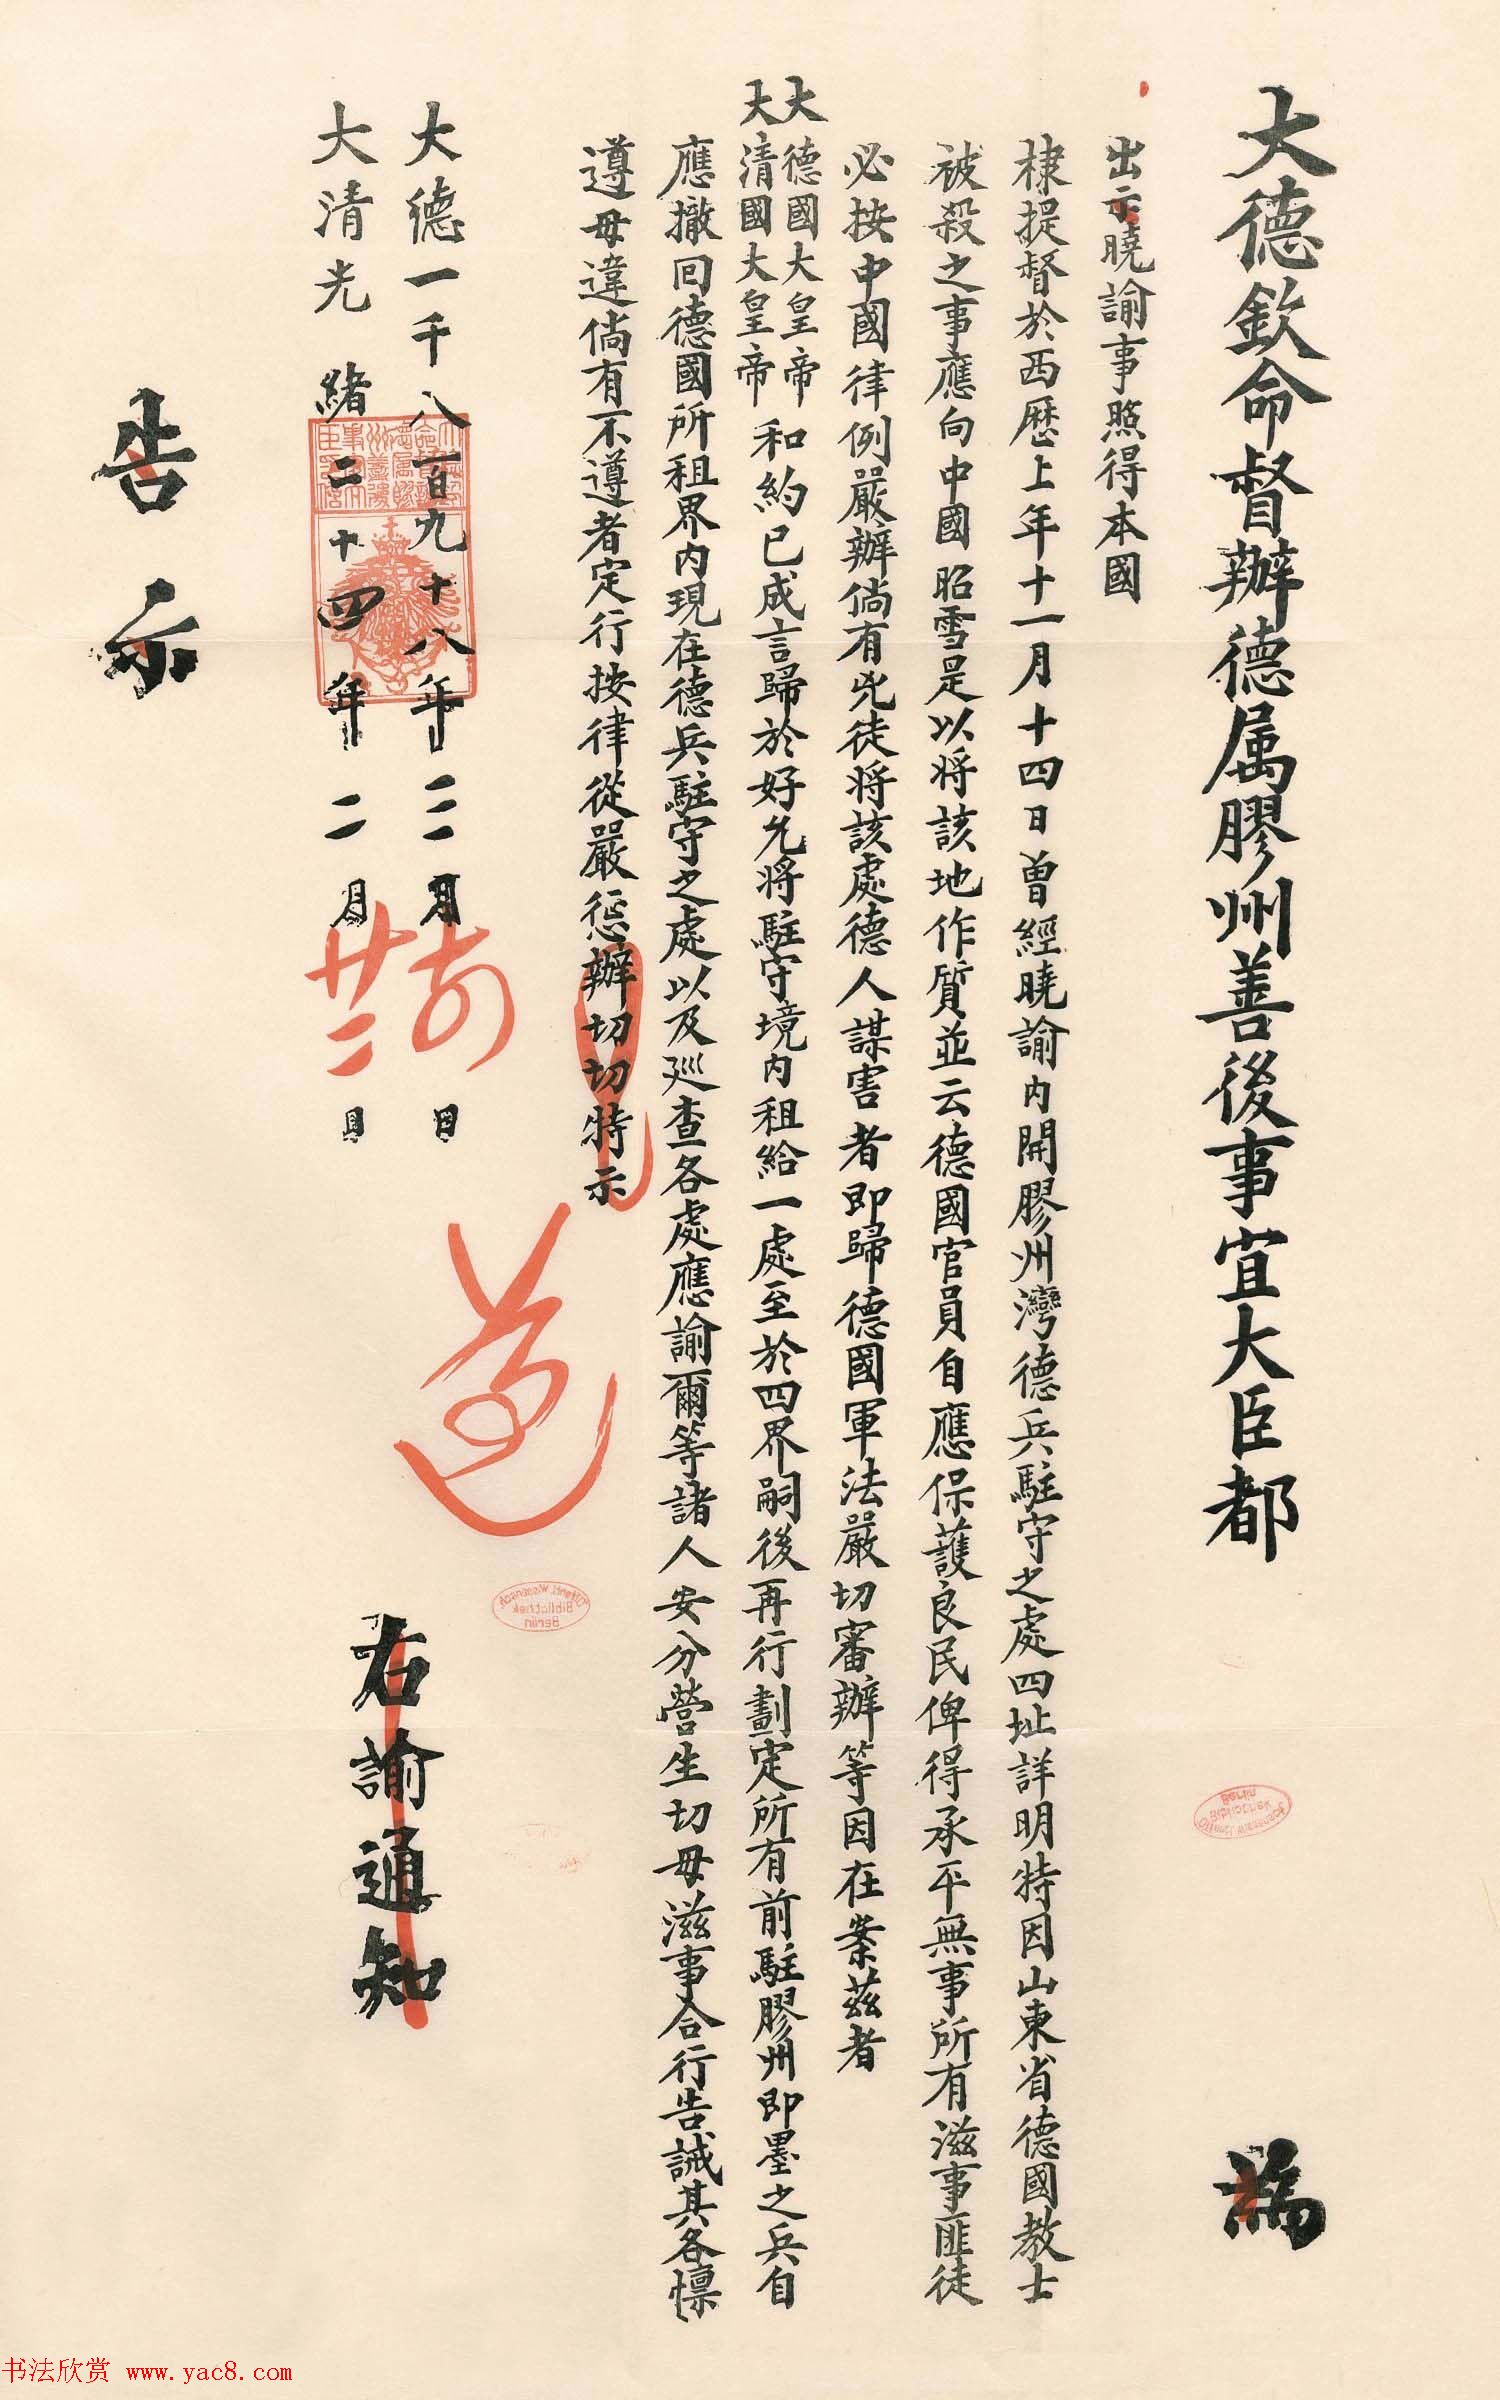 大德欽命督辦德属膠州善後事宜大臣都 為
出示曉諭事照得本國
棣提督於西歷上年十一月十四日曾經曉諭内開膠州灣德兵駐守之處四址詳明特因山東省德國教士
被殺之事應向中國昭雪是以將該地作質並云德國官員自應保護良民俾得承平無事所有滋事匪徒
必按中國律例嚴辦倘有兇徒將該處德人謀害者即歸德國軍法嚴切審辦等因在案茲者
大德國大皇帝
大清國大皇帝
和約已成言歸於好允將駐守境内租給一處至於四界嗣後再行劃定所有前駐膠州即墨之兵自
應撤回德國所租界内現在德兵駐守之處以及廵查各處應諭爾等諸人安分營生切毋滋事合行告誡其各懍
遵毋違倘有不遵者定行按律從嚴懲辦切切特示
大德一千八百九十八年三月 日
大清光緒二十四年二月廿二日
遵
右諭通知
告示
书法欣赏 www.yac8.com